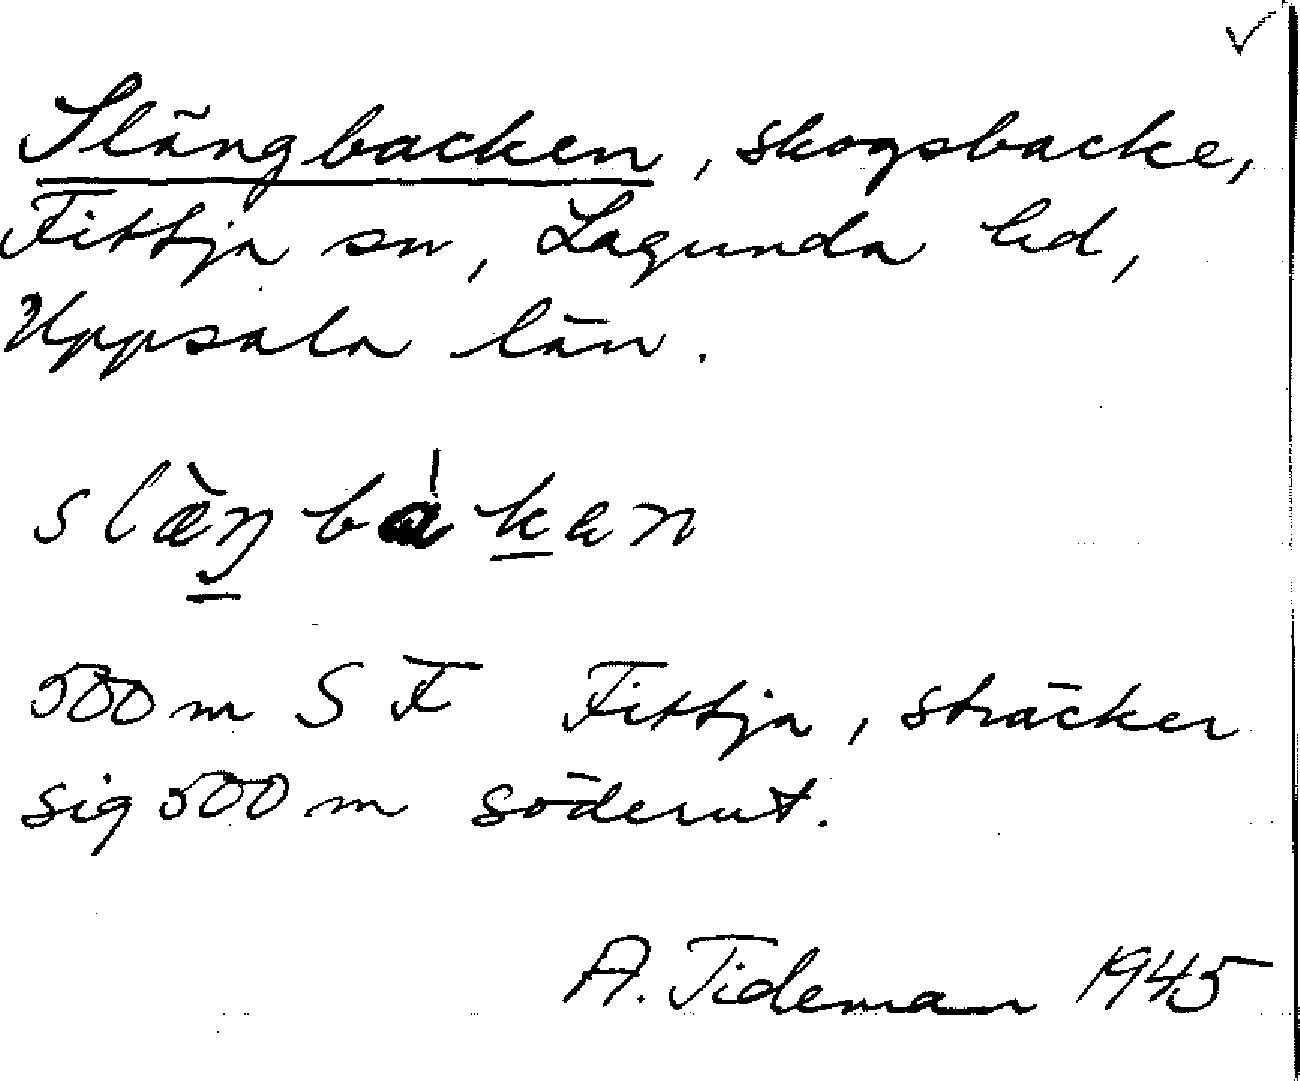 Slängbacken, skogsbacke,
Fittja sn, Lagunda hd,
Uppsala län.
slæ̀ŋbàkan
500 m S F Fittja, sträcker
sig 500 m söderut.
A. Tideman 1945